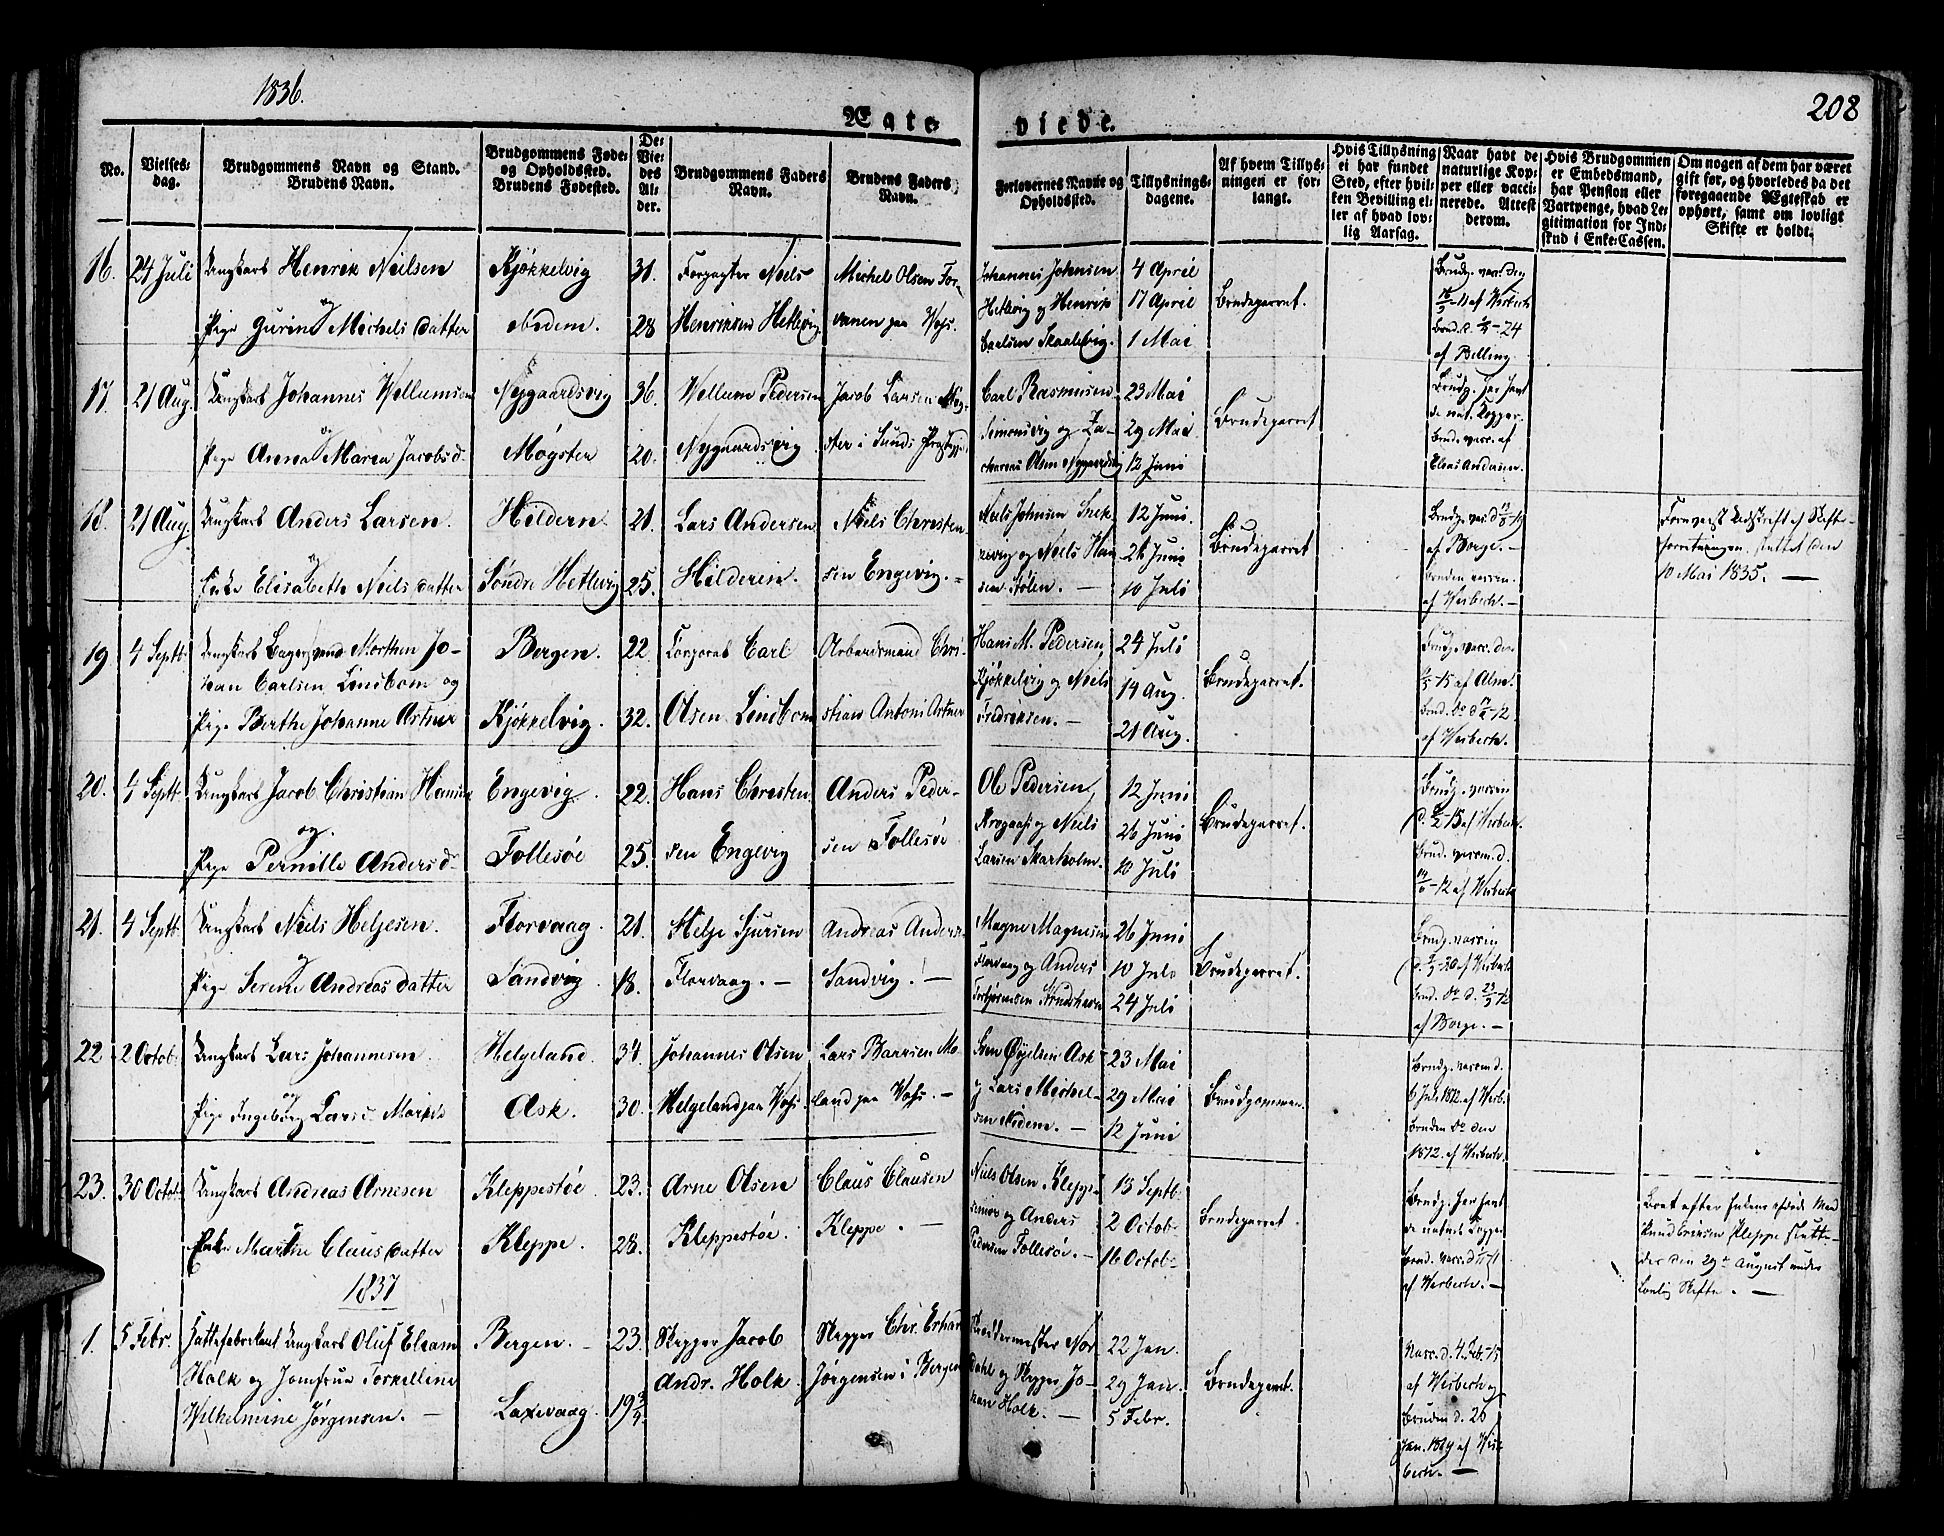 1836.
208
Ægteviede.
No.
Vielsesdag.
Brudgommens Navn og Stand.
Brudens Navn.
Brudgommens Føde-
og Opholdssted.
Brudens Fødested.
De
Vie-
des
Al-
der.
Brudgommens Faders
Navn.
Brudens Faders
Navn.
Forlovernes Navne og
Opholdssted.
Tillysnings-
dagene.
Af hvem Tillys-
ningen er for-
langt.
Hvis Tillysning
ei har fundet
Sted, efter hvil-
ken Bevilling el-
ler af hvad lov-
lig Aarsag.
Naar havt de
naturlige Kop-
per eller vacci-
nerede. Attest
derom.
Hvis Brudgommen
er Embedsmand,
har Pension eller
Vartpenge, hvad Le-
gitimation for Ind-
skud i Enke-Cassen.
Om nogen af dem har været
gift før, og hvorledes da det
foregaaende Ægteskab er
ophørt, samt om lovligt
Skifte er holdt.
16. 24 Juli Ungkarl Henrik Nielsen
og
Pige Gurine Michels datter
Kjøkkelvig
ibidem.
31.
28
Forpagter Niels
Henriksen Hetlevig
Michel Olsen For-
vanen paa Vos.
Johannes Johnsen
Hetlevig og Henrik
Carlsen Skaalevig.
4 April
17 April
1 Mai
Brudeparret.
Brudg. vacc. den
af Wesbech
Brud. d. -24
af Billing
17. 21 Aug. Ungkarl Johannes Wellumsen
og
Pige Anna Maria Jacobsd.
Nygaardsvig
Møgster
36.
20.
Wellum Pedersen
Nygaardsvig
Jacob Larsen Møg-
ster i Sunds Præstegj.
Carl Rasmusen
Simonsvig og Za-
charias Olsen Nygaardsvig
23 Mai
29 Mai
12 Juni
Brudeparret
Brudg. har havt
de nat. Kopper.
Brud. vacc. af
Elias Andersen.
18. 21 Aug. Ungkarl Anders Larsen.
og
Enke Elisabeth Niels datter
Hildern
Søndre Hetlevig
21.
25.
Lars Andersen
Hilderen.
Niels Christen-
sen Engevig.
Niels Johnsen
og Niels Han
sen Stølen. —
12 Juni.
26 Juni
10 Juli
Brudeparret
Brudg. vac. d.
af Borge. —
Bruden vaccin.
af Wesbech. —
Forevist Udskrift af Skifte-
forretningen, sluttet den
10 Mai 1835. —
19 4 Septb. Ungkarl Bagersvend Morthen Jo-
han Carlsen Lindbom og
Pige Berthe Johanne Astner
Bergen.
Kjøkkelvig.
22
32.
Carl
Olsen Lindbom
Arbeidsmand Chri-
stian Antoni Astner
Hans M. Pedersen,
Kjøkkelvig og Niels
Fredriksen. —
24 Juli
14 Aug.
21 Aug.
Brudeparret.
Brudg. vacc. den
-15 af Alm.
Brud. do d. -12.
af Wesbech.
20. 4 Septb. Ungkarl Jacob Christian Hansen
og
Pige Pernille Andersd.
Engevig.
Follesøe
22.
25.
Hans Christen
sen Engevig
Anders Peder-
sen Follesøe
Ole Pedersen,
og Niels
Larsen Skarholm.
12 Juni
26 Juni
10 Juli
Brudeparret.
Brudg. vaccin
d. -13 af Wesbech.
Brud. vaccin. d.
-12 af Wesbech
21. 4 Septb. Ungkarl Niels Heljesen.
og
Pige Serine Andreas datter
Florvaag
Sandvig
21.
18.
Helje Sjursen
Florvaag. —
Andreas Anders.
Sandvig. —
Magne Magnesen
Florvaag og Anders
Torbjørnsen Strudshavn
26 Juni
10 Juli
24 Juli
Brudeparret.
Brudg. vaccin
d. -30 af Wesbech
Brud. do d.
af Borge. —
22 2 Octob. Ungkarl Lars Johannesen
og
Pige Ingeborg Larsd. Marken
Helgeland.
Ask.
34.
30.
Johannes Olsen
Helgeland paa Vos.
Lars Baarsen Mo
land paa Vos. —
Sven Øyelsen Ask
og Lars Michel-
sen ibidem. —
23 Mai
29 Mai
12 Juni
Brudgommen.
Brudg. vaccin d.
6 Juli 1812. af Wesb.
Bruden do den
1812. af Wesbech.
23. 30 Octob. Ungkarl Andreas Arnesen
Enke Marthe Claus datter
Kleppestøe
Kleppe.
23.
28.
Arne Olsen
Kleppestøe.
Claus Clausen
Kleppe. —
Niels Olsen, Kleppe
og Anders
Pedersen Follesøe. —
18 Septb.
2 Octob.
16 Octob.
Brudeparret.
Brudg. har havt
de naturl. Kopper
Brud. vacc. d.
af Wesbech. —
Brud efter Enkens afdøde Mand
Knud Kleppe slutte-
des den 29de August under
Lovlig Skifte. —
1837
1. 5 Febr. Hattefabrikant Ungkarl Oluf
Holck og Jomfrue Torkelline
Wilhelmine Jørgensen. —
Bergen.
Laxevaag.
23.
19
Skipper Jacob
Andr. Holck
Skipper Chr. Erhard
Jørgensen i Bergen
Skreddermester Nor
dahl og Skipper Jo-
han Holck. —
22 Jan.
29 Jan.
5 Febr.
Brudeparret.
Vacc. d. 4 Feb.-15
af Wesbech og
Bruden d. 26
Jan. 1819 af Wes
bech. —